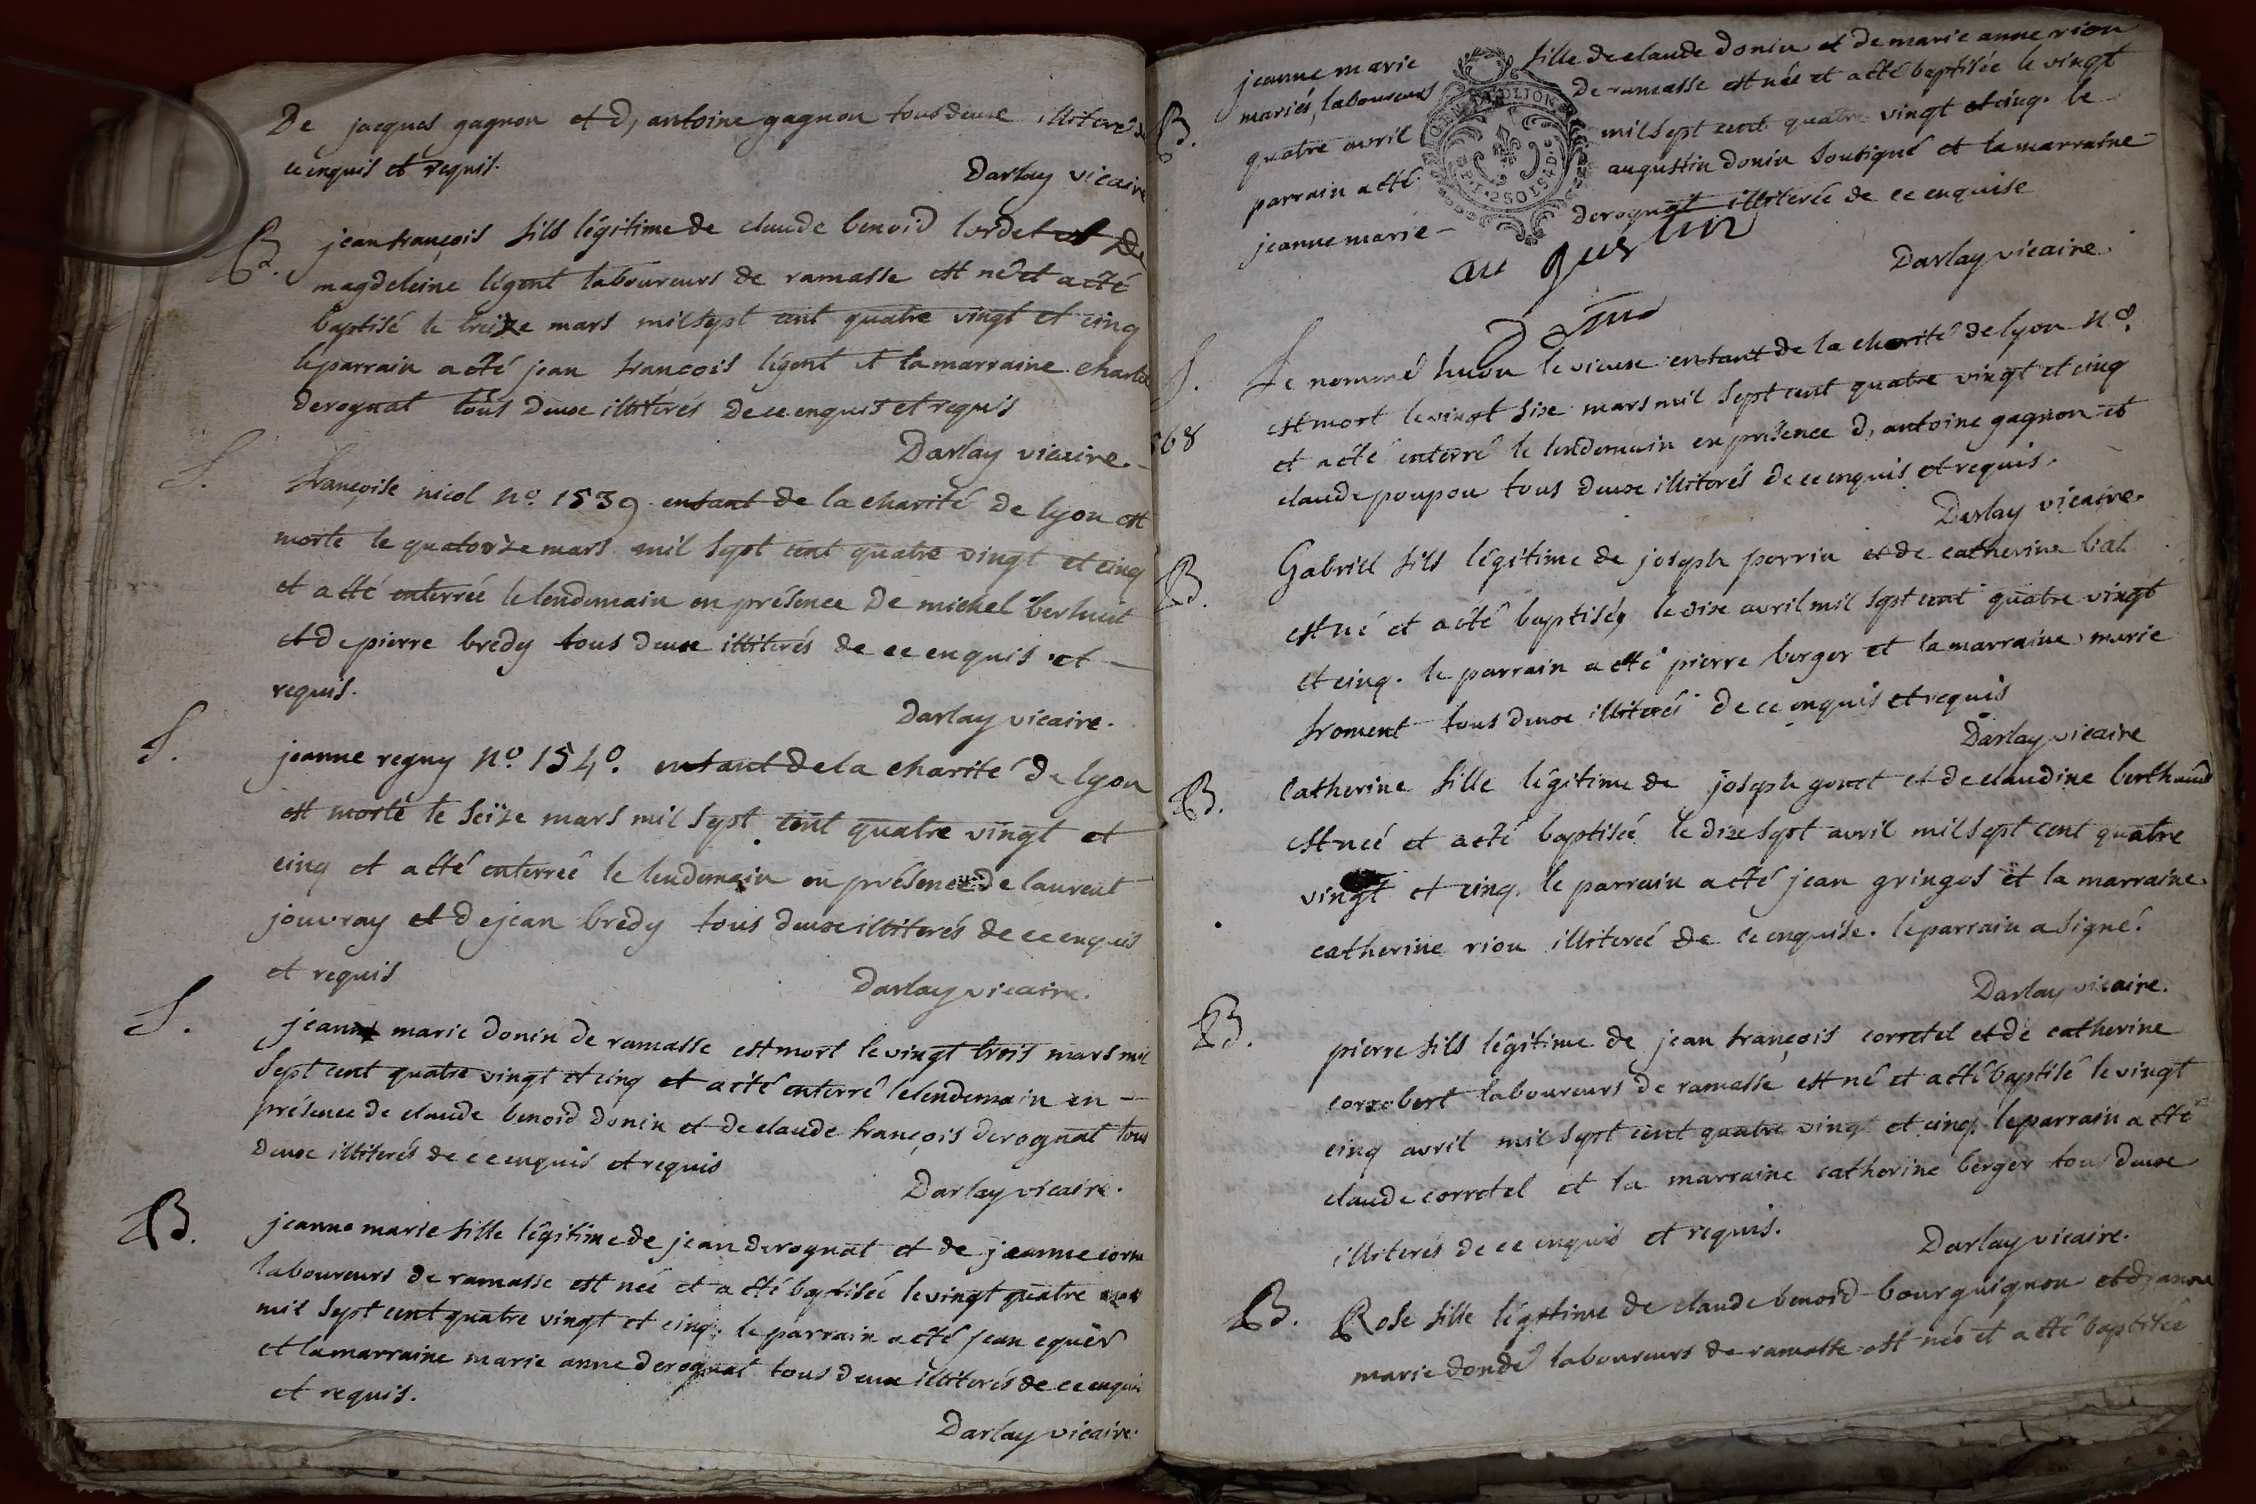 De jacques gagnon et d, antoine gagnon tous deux illiterés de
ce enquis et requis.
Darlay vicaire
B. jean françois fils légitime de claude benoid cordet et de
magdeleine légent laboureurs de ramasse est né et a été
baptisé le treize mars mil sept cent quatre vingt et cinq
le parrain a été jean françois légent et la marraine charlo
derognat tous deux illiterés de ce enquis et requis
Darlay vicaire.
S. françoise nicol n.o 1539 enfant de la charité de lyon est
morte le quatorze mars mil sept cent quatre vingt et cinq
et a été enterrée le lendemain en présence de michel berliuet
et de pierre bredy tous deux illiterés de ce enquis et
requis.
Darlay vicaire.
S. jeanne regny n.o 1540. enfant de la charité de lyon
est morte le seize mars mil sept cent quatre vingt et
cinq et a été enterrée le lendemain en présence de laurent
jouvray et de jean bredy tous deux illiterés de ce enquis
et requis
Darlay vicaire.
S. jean marie donin de ramasse est mort le vingt trois mars mil
sept cent quatre vingt et cinq et a été enterré le lendemain en
présence de claude benoid donin et de claude françois derognat tous
deux illiterés de ce enquis et requis
Darlay vicaire.
B. jeanne marie fille légitime de jean derognat et de jeanne corne
laboureurs de ramasse est née et a été baptisée le vingt quatre mars
mil sept cent quatre vingt et cinq. le parrain a été jean equer
et la marraine marie anne derognat tous deux illiterés de ce enquis
et requis.
Darlay vicaire.
B. jeanne marie fille de claude donin et de marie anne rion
mariés, laboureurs de ramasse est née et a été baptisée le vingt
quatre avril mil sept cent quatre vingt et cinq. le
parrain a été augustin donin soussigné et la marraine
jeanne marie derognat illiterée de ce enquise
GEN. DE DIJON
Darlay vicaire.
au gustin
Donin
S. Le nommé huou le vieux enfant de la charité de lyon n.o
568 est mort le vingt six mars mil sept cent quatre vingt et cinq
et a été enterré le lendemain en présence d, antoine gagnon et
claude poupou tous deux illiterés de ce enquis et requis.
Darlay vicaire.
B. Gabriel fils légitime de joseph perrin et de catherine bal
est né et a été baptisé, le dix avril mil sept cent quatre vingt
et cinq. le parrain a été pierre berger et la marraine marie
froment tous deux illiterés de ce enquis et requis
Darlay vicaire
B. Catherine fille légitime de joseph gonet et de claudine berthaud
est née et a été baptisée le dix sept avril mil sept cent quatre
vingt et cinq. le parrain a été jean gringos et la marraine
catherine riou illiterée de ce enquise. le parrain a signé.
Darlay vicaire.
B. pierre fils légitime de jean françois corretel et de catherine
corrobert laboureurs de ramasse est né et a été baptisé le vingt
cinq avril mil sept cent quatre vingt et cinq. le parrain a été
claude corretel et la marraine catherine berger tous deux
illiterés de ce enquis et requis.
Darlay vicaire.
B. Rose fille légitime de claude benoid bourguignon et d, anne
marie dondé laboureurs de ramasse est née et a été baptisée